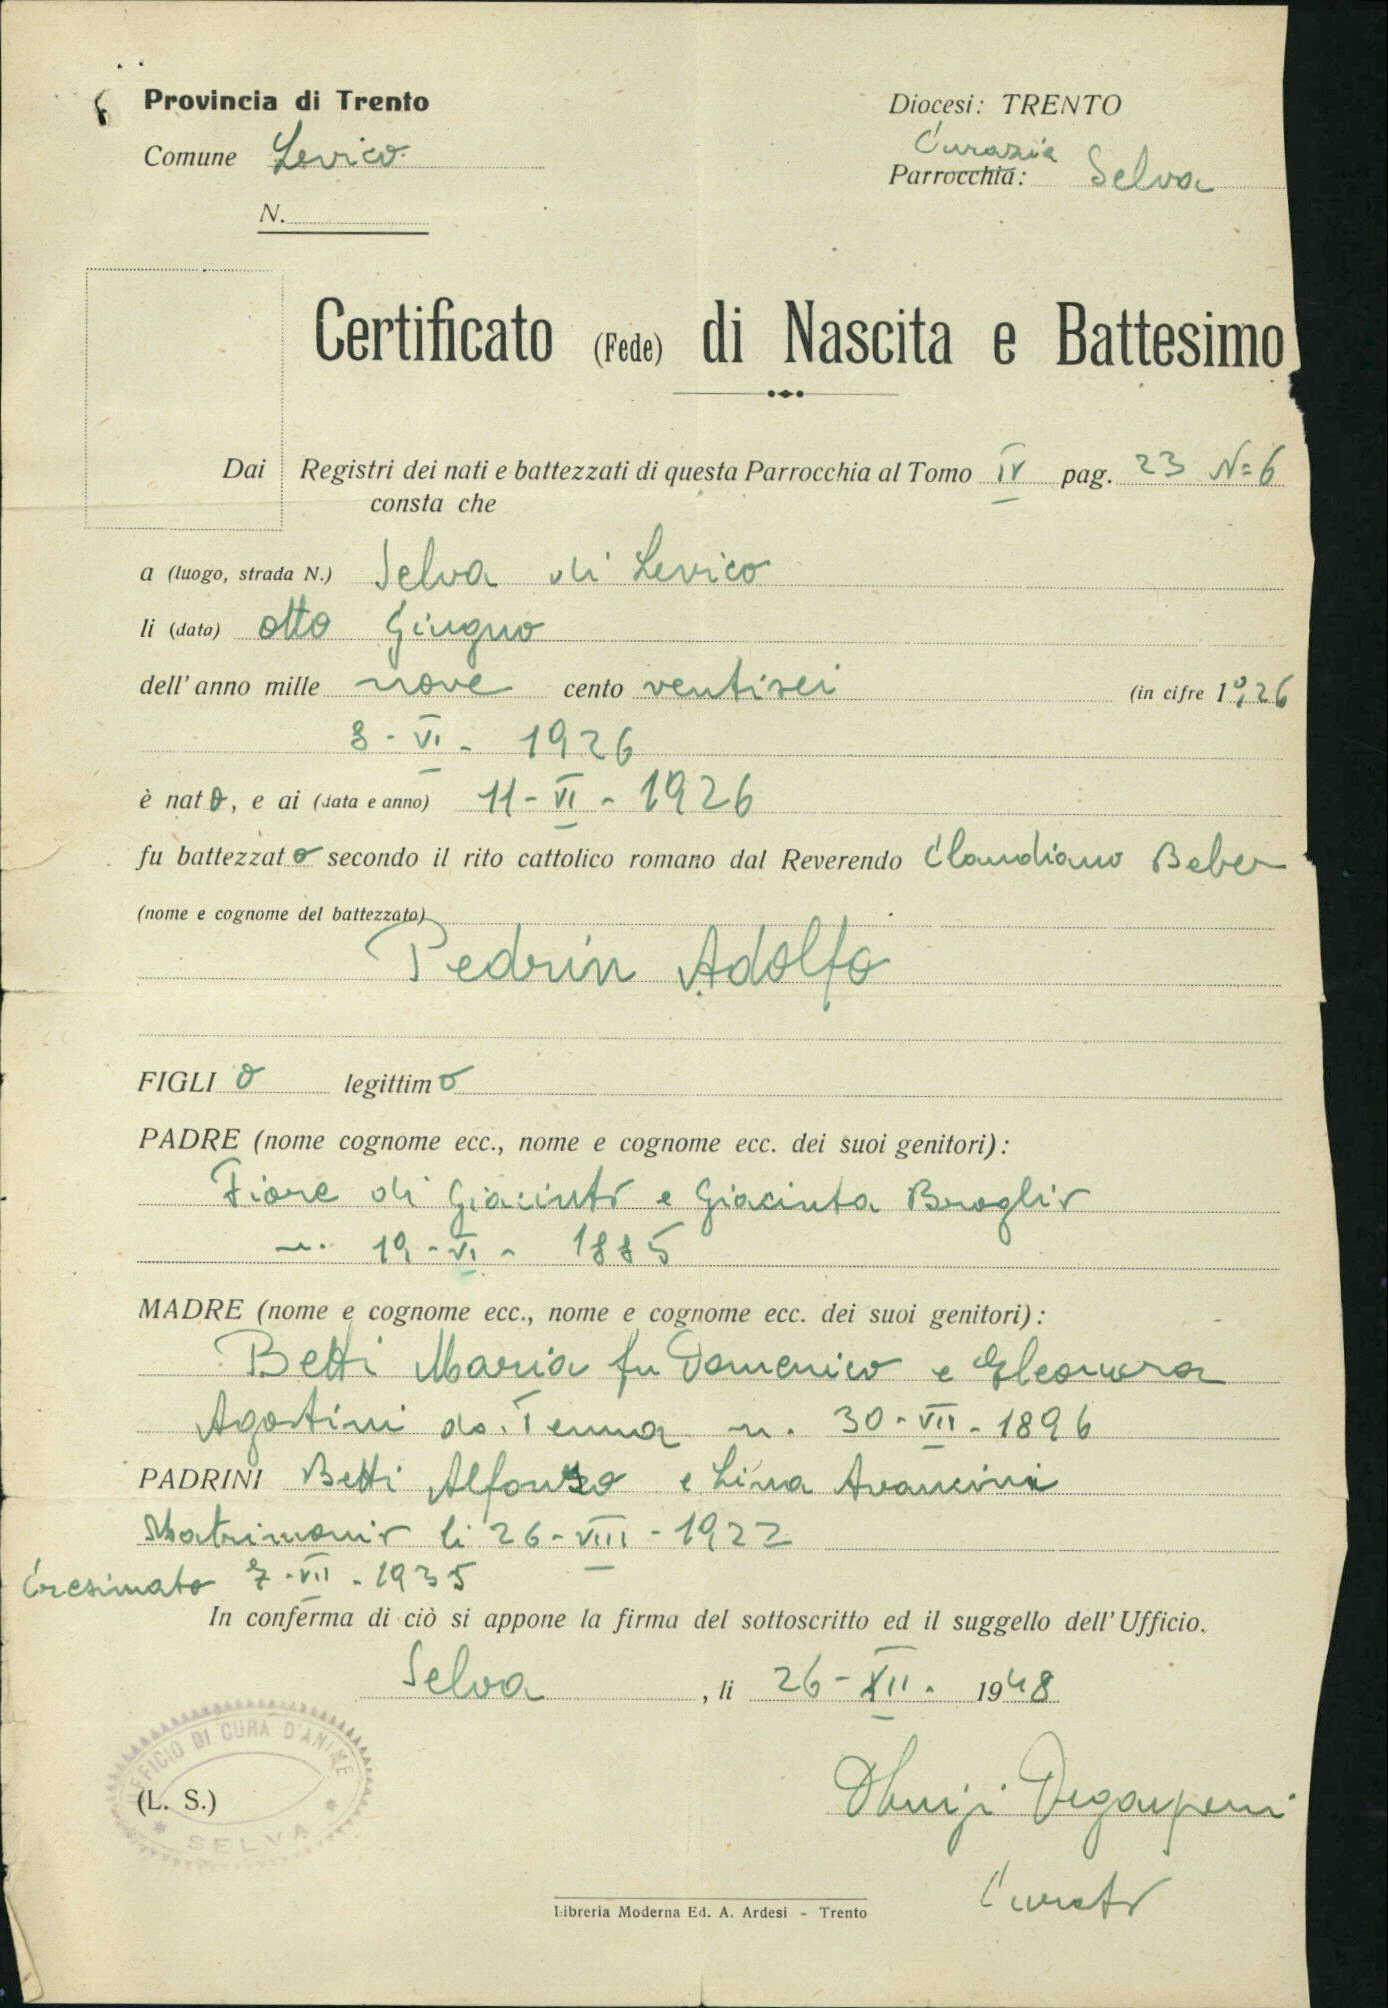 Provincia di Trento
Diocesi: TRENTO
Comune Levico
Curazia
Parrocchia: Selva
N.
Certificato (Fede) di Nascita e Battesimo
Dai Registri dei nati e battezzati di questa Parrocchia al Tomo IV pag. 23 N=6
consta che
a (luogo, strada N.) Selva di Levico
li (data) otto Giugno
dell'anno mille nove cento ventisei (in cifre 1926
8-VI- 1926
è nato, e ai (data e anno) 11-VI-1926
fu battezzato secondo il rito cattolico romano dal Reverendo Claudiano Beber
(nome e cognome del battezzato)
Pedrin Adolfo
FIGLIo legittimo
PADRE (nome cognome ecc., nome e cognome ecc. dei suoi genitori):
Fiore di Giacinto e Giacinta Broglio
n. 19-VI- 1885
MADRE (nome e cognome ecc., nome e cognome ecc. dei suoi genitori):
Betti Maria fu Domenico e Eleonora
Agostini da Tenna n. 30-VII-1896
PADRINI Betti Alfonso e Lina Avancini
Matrimonio li 26-VIII-1922
Cresimato 7-VII-1935
In conferma di ciò si appone la firma del sottoscritto ed il suggello dell'Ufficio.
Selva, li 26-XII. 1948
UFFICIO DI CURA D'ANIME
(L. S.)
SELVA
Degasperi
Curato
Libreria Moderna Ed. A. Ardesi - Trento